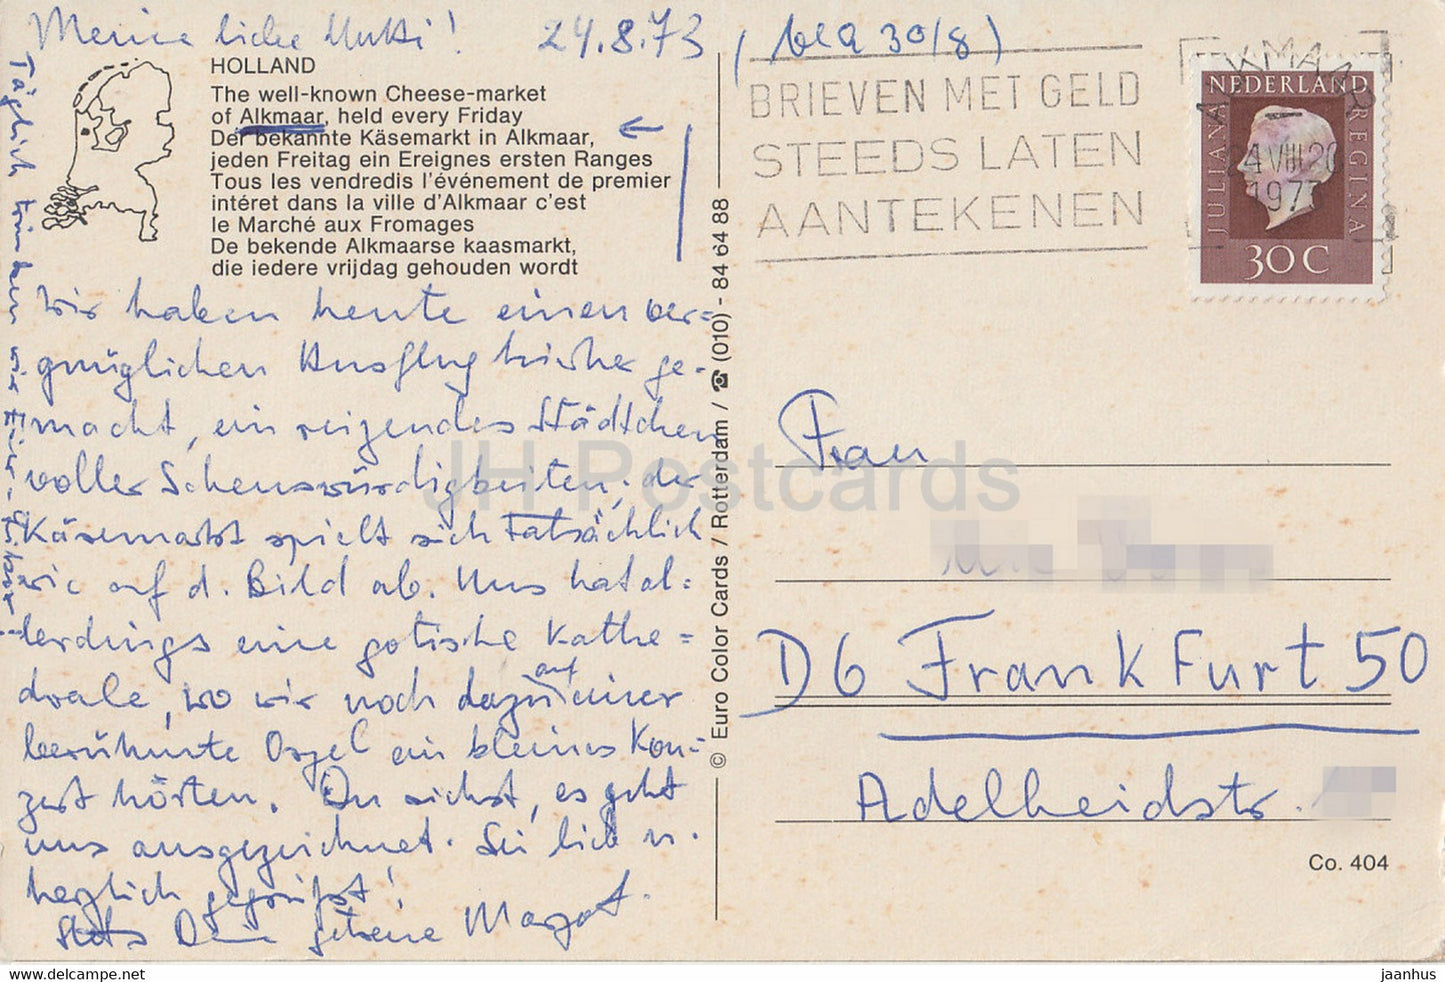 Meine liebe Mutti! 24.8.73
HOLLAND
The well-known Cheese-market
of Alkmaar, held every Friday
Der bekannte Käsemarkt in Alkmaar,
jeden Freitag ein Ereignes ersten Ranges
Tous les vendredis l'événement de premier
intéret dans la ville d'Alkmaar c'est
le Marché aux Fromages
De bekende Alkmaarse kaasmarkt,
die iedere vrijdag gehouden wordt
wir haben heute einen ver=
gnüglichen Ausflug hierher ge-
macht, ein reizendes Städtchen
voller Sehenswürdigkeiten, der
Käsemarkt spielt sich tatsächlich
wie auf d. Bild ab. Uns hat al=
lerdings eine gotische Kathe=
drale, wo wir noch dazu auf einer
berühmte Orgel ein kleines Kon=
zert hörten. Du siehst, es geht
uns ausgezeichnet. Sei lieb u.
herzlich gegrüßt!
Stets Deine getreue Margot.
Täglich trinken wir
© Euro Color Cards / Rotterdam / ☎ (010) - 84 64 88
30/8)
BRIEVEN MET GELD
STEEDS LATEN
AANTEKENEN
ALKMAAR
24 VIII 20
1973
NEDERLAND
JULIANA
REGINA
30 C
Frau
D6 Frankfurt 50
Adelheidstr.
Co. 404
JH Postcards
© www.delcampe.net
jaanhus